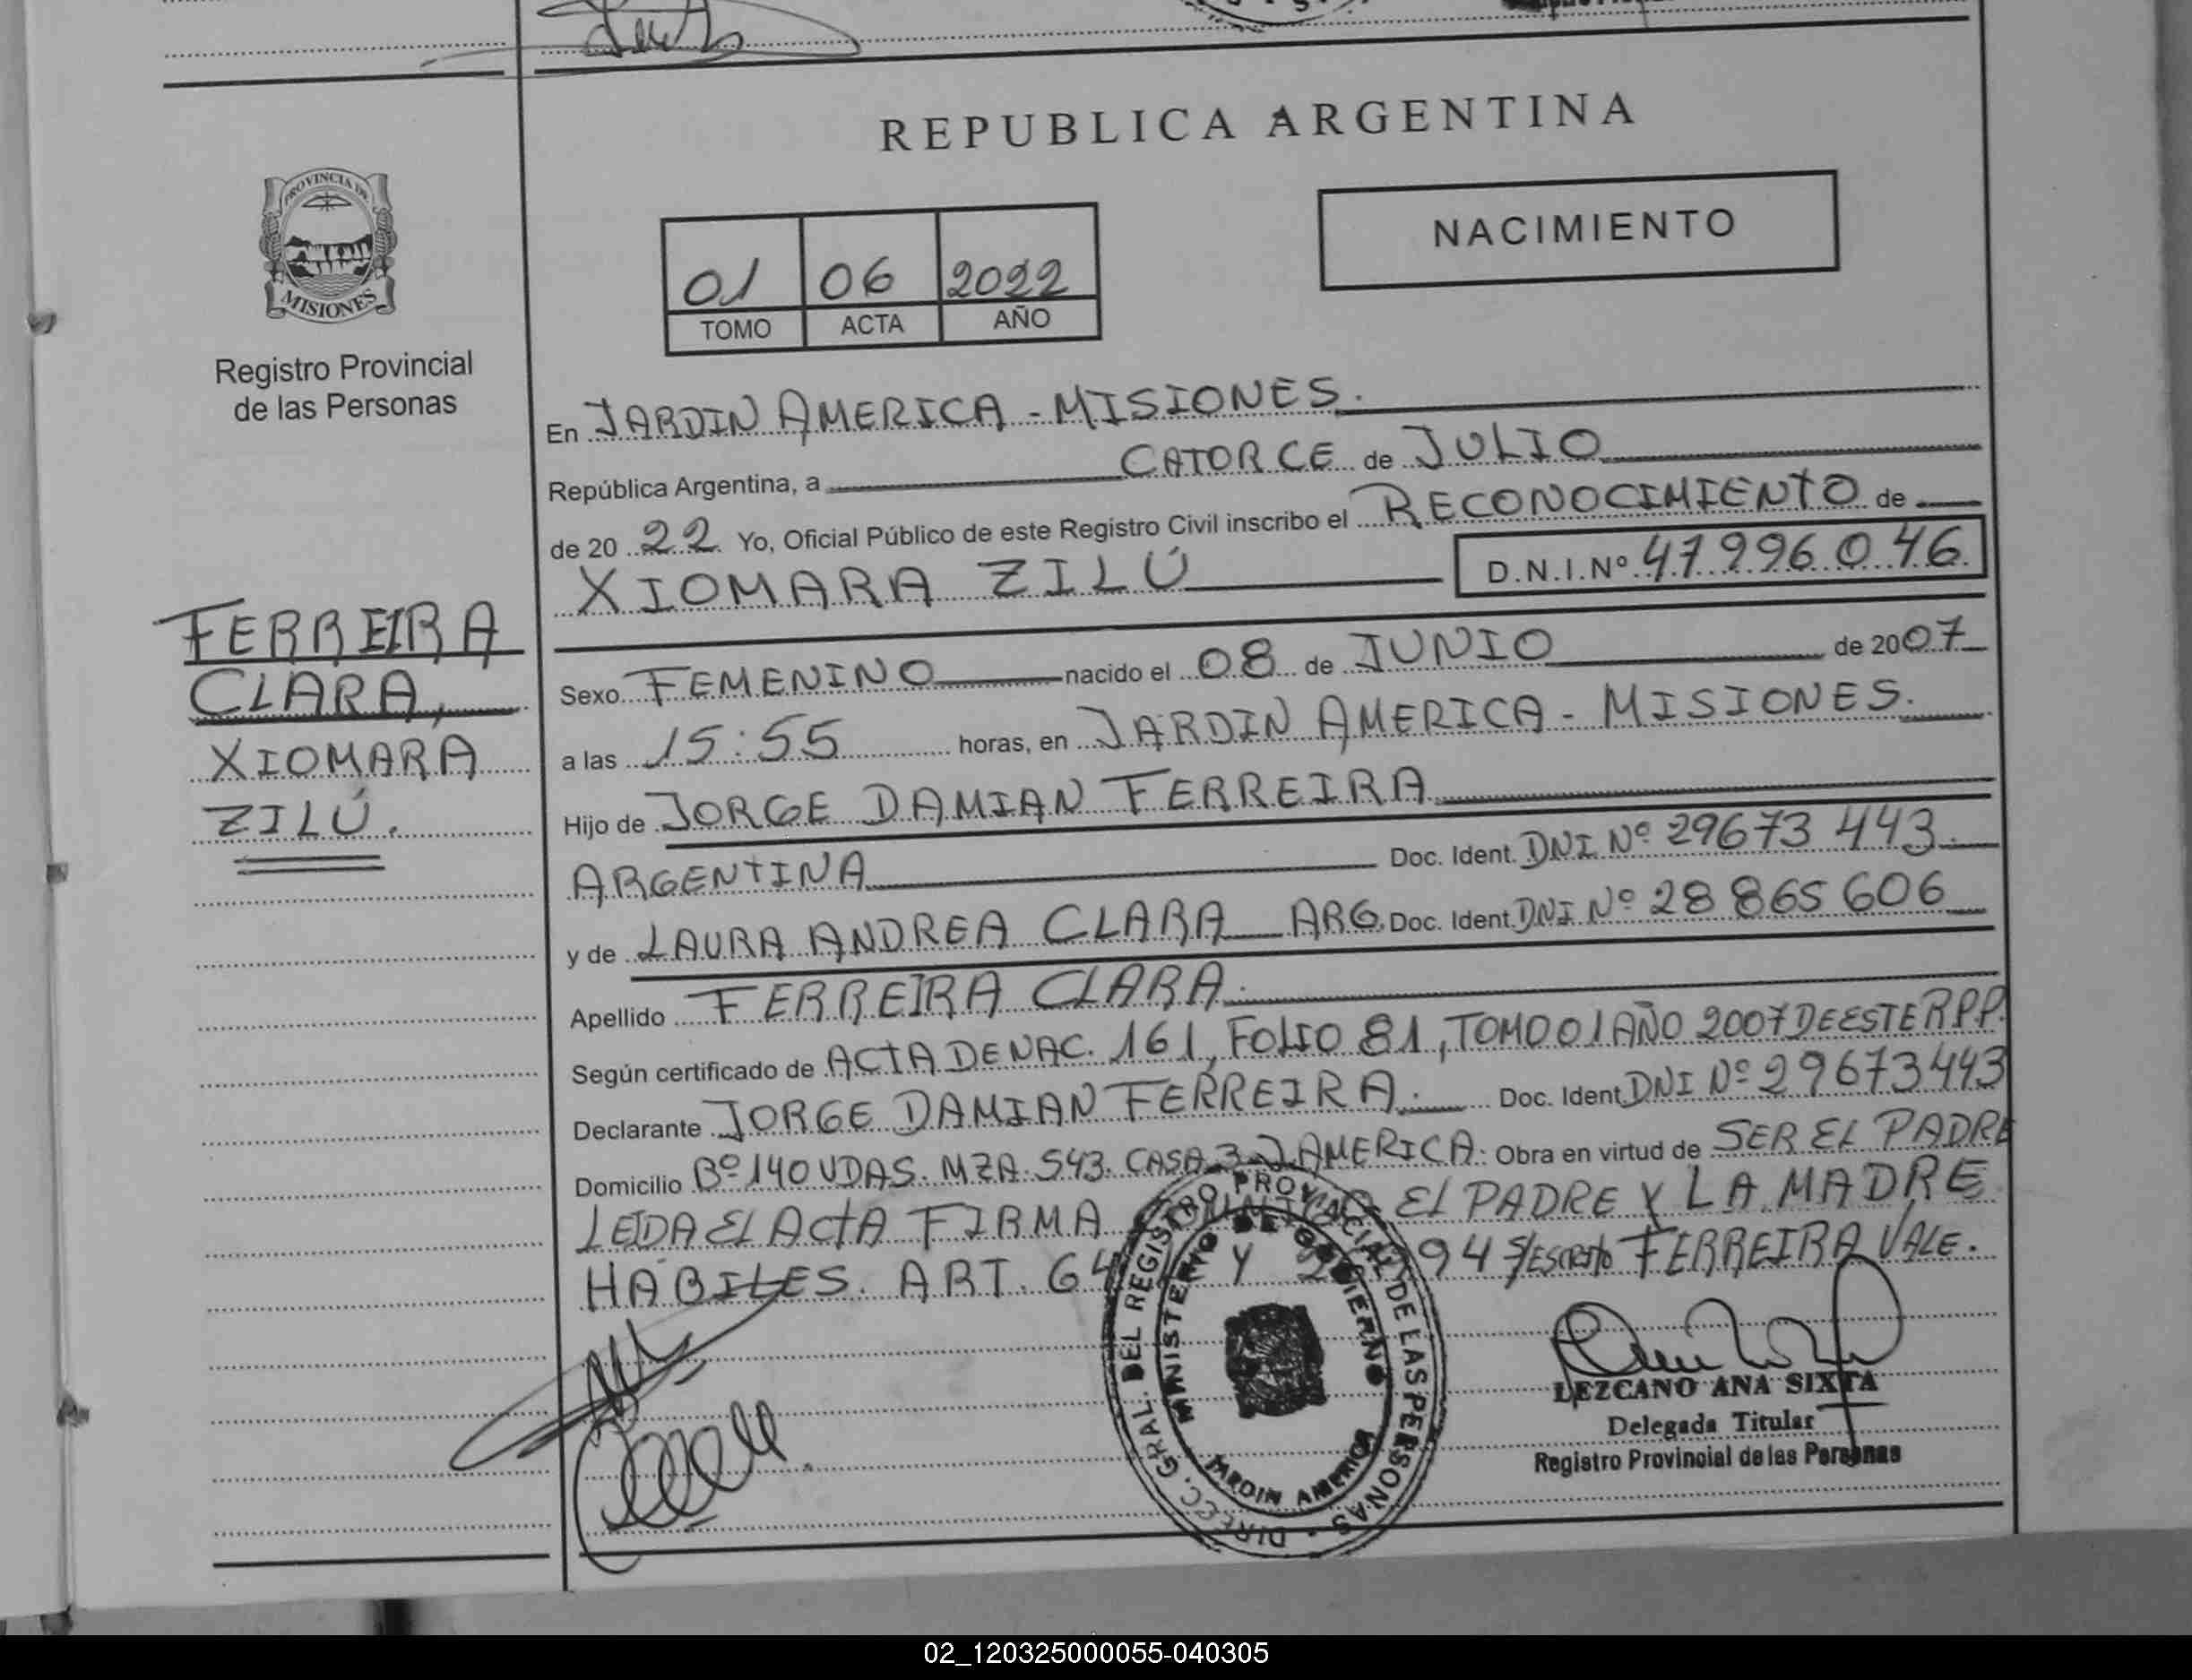 REPUBLICA ARGENTINA
PROVINCIA DE
MISIONES
Registro Provincial
de las Personas
FERREIRA
CLARA,
XIOMARA
ZILÚ.
NACIMIENTO
01 06 2022
TOMO ACTA AÑO
En JARDIN AMERICA - MISIONES.
República Argentina, a CATORCE de JULIO
de 20 22 Yo, Oficial Público de este Registro Civil inscribo el RECONOCIMIENTO de
XIOMARA ZILÚ D.N.I.Nº 47996046
Sexo FEMENINO nacido el 08 de JUNIO de 2007
a las 15:55 horas, en JARDIN AMERICA - MISIONES.
Hijo de JORGE DAMIAN FERREIRA
ARGENTINA Doc. Ident. DNI Nº 29673 443.
y de LAURA ANDREA CLARA ARG. Doc. Ident. DNI Nº 28 865 606
Apellido FERREIRA CLARA.
Según certificado de ACTA DE NAC. 161, FOLIO 81, TOMO 01 AÑO 2007 DE ESTE RPP.
Declarante JORGE DAMIAN FERREIRA. Doc. Ident. DNI Nº 29673443
Domicilio Bº 140 VDAS. MZA. 543. CASA 3 J. AMERICA. Obra en virtud de SER EL PADRE
LEIDA EL ACTA FIRMA EL PADRE Y LA MADRE
HABILES. ART. 64 Y 94 S/ESCRITO FERREIRA VALE.
DIREC. GRAL. DEL REGISTRO PROVINCIAL DE LAS PERSONAS
MINISTERIO DE GOBIERNO
JARDIN AMERICA
LEZCANO ANA SIXTA
Delegada Titular
Registro Provincial de las Personas
02_120325000055-040305